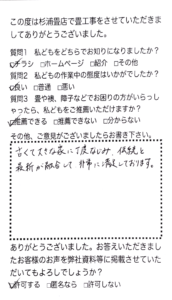 この度は杉浦畳店で畳工事をさせていただきま
してありがとうございました。
質問1 私どもをどちらでお知りになりましたか？
☑チラシ □ホームページ □紹介 □その他
質問2 私どもの作業中の態度はいかがでしたか？
☑良い □普通 □悪い
質問3 畳や襖、障子などでお困りの方がいらっし
ゃったら、私どもをご推薦いただけますか？
☑推薦できる □推薦できない □分からない
その他、ご意見がございましたらお書き下さい。
古くて大きな家に
最新が融合して 非常に満足しております。
ありがとうございました。お答えいただきまし
たお客様のお声を弊社資料等に掲載させていた
だいてもよろしでしょうか？
☑許可する □匿名なら □許可しない